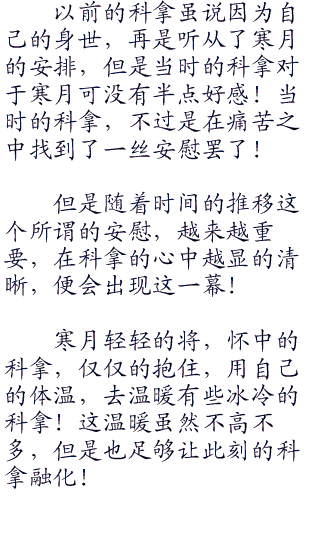 以前的科拿虽说因为自
己的身世，再是听从了寒月
的安排，但是当时的科拿对
于寒月可没有半点好感！当
时的科拿，不过是在痛苦之
中找到了一丝安慰罢了！
但是随着时间的推移这
个所谓的安慰，越来越重
要，在科拿的心中越显的清
晰，便会出现这一幕！
寒月轻轻的将，怀中的
科拿，仅仅的抱住，用自己
的体温，去温暖有些冰冷的
科拿！这温暖虽然不高不
多，但是也足够让此刻的科
拿融化！